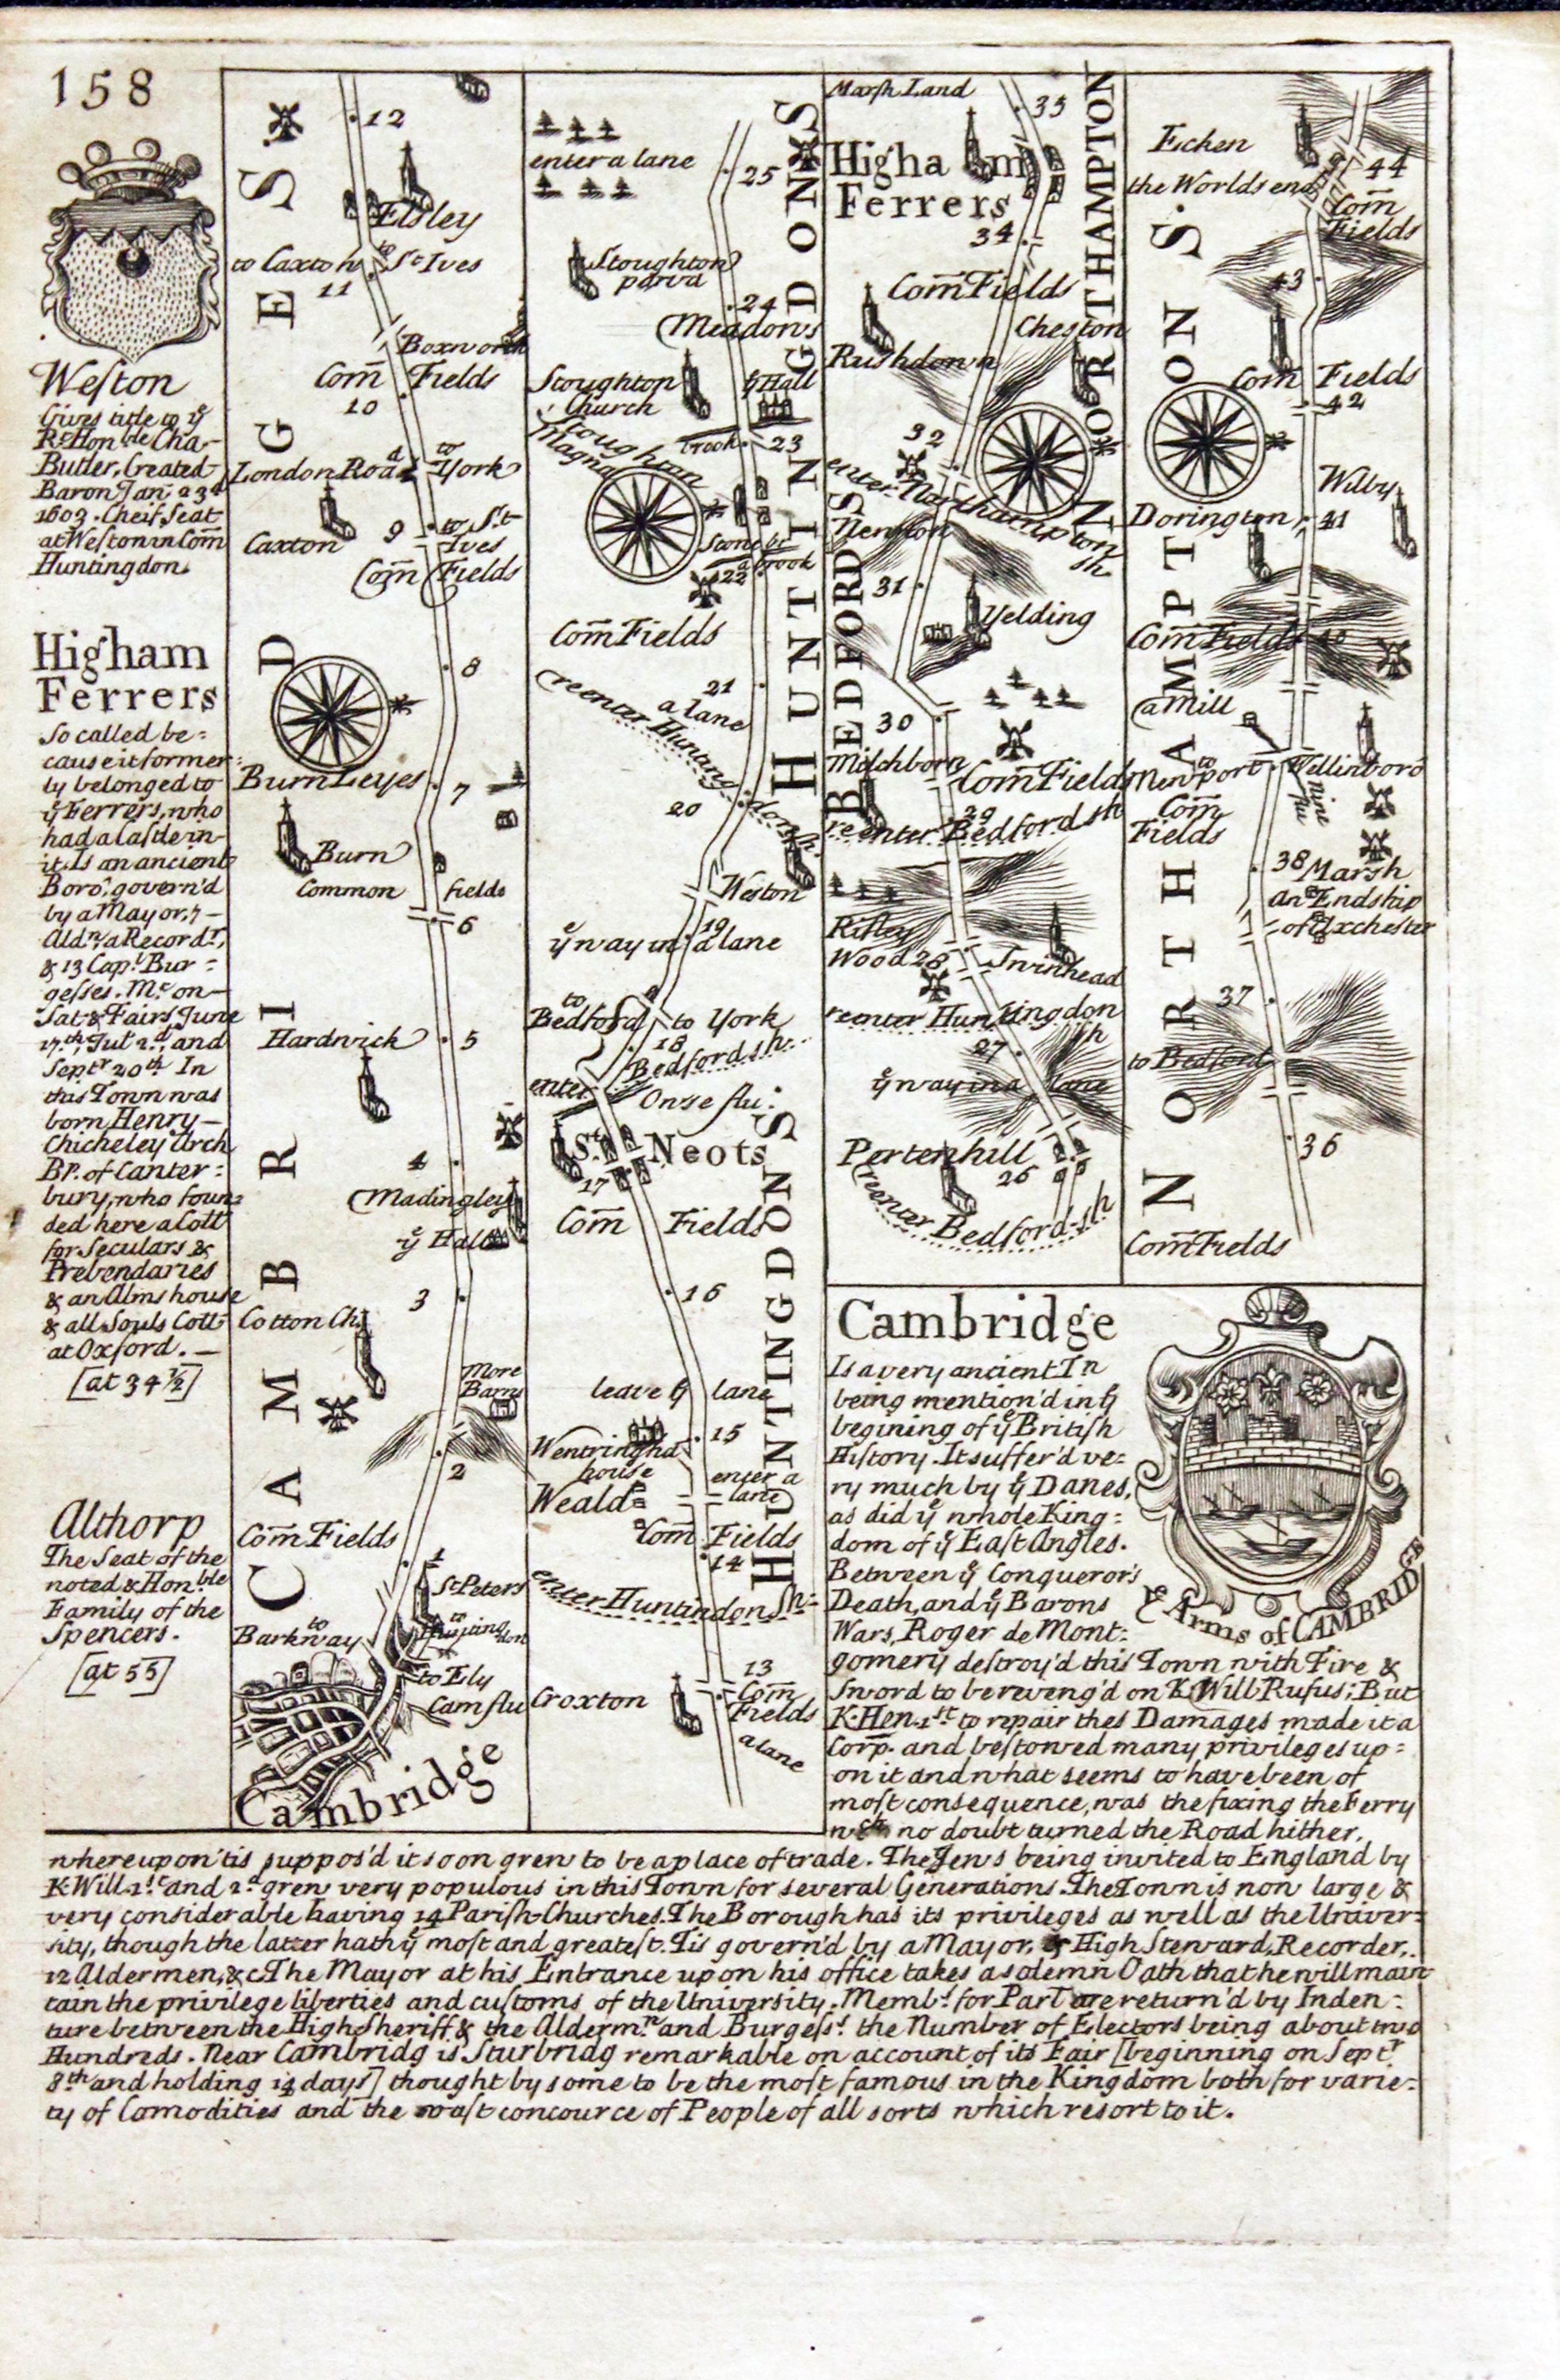 158
Weston
Gives title to yͤ
Rᵗ Honᵇˡᵉ Cha-
Butler, Created
Baron Jan: 23ᵈ
1693. Cheif Seat
at Weston in Com̄
Huntingdon.
Higham
Ferrers
So called be=
cause it former=
ly belonged to
yͤ Ferrers, who
had a Castle in-
it. Is an ancient
Boro', govern'd
by a Mayor, 7-
Aldⁿ, a Recordʳ,
& 13 Capˡ Bur=
gesses. Mᵗ on-
Sat. & Fairs June
17ᵗʰ, Jul 2ᵈ, and
Septʳ 20ᵗʰ In
this Town was
born Henry-
Chicheley Arch
Bᵖ. of Canter=
bury, who foun=
ded here a Coll
for Seculars &
Prebendaries
& an Alms house
& all Souls Coll-
at Oxford.-
[at 34½]
Althorp
The Seat of the
noted & Honᵇˡᵉ
Family of the
Spencers.
[at 55]
CAMBRIDGES.
12
Elsley
to Caxton
to Sᵗ Ives
11
Boxworth
Com̄ Fields
10
London Road
to York
9
to Sᵗ Ives
Caxton
Com̄ Fields
8
Burn Leyes
7
Burn
Common fields
6
Hardwick
5
4
Madingley
yͤ Hall
3
Cotton Ch.
More
Barns
2
Com̄ Fields
1
Sᵗ Peters
to Barkway
to Huntingdon
to Ely
Cam flu
Cambridge
HUNTINGDONS
enter a lane
25
Stoughton
parva
24
Meadows
Stoughton
Church
yͤ Hall
brook
23
Stoughton
Magna
Stone br
a brook
22
Com̄ Fields
21
a lane
reenter Huntingdonsh.
20
Weston
19
yͤ way in a lane
to Bedford
to York
18
enter Bedfordsh.
Onse flu:
Sᵗ Neots
17
Com̄ Fields
HUNTINGDONS
16
leave yͤ lane
15
Wentringha
house
enter a
lane
Weald
Com̄ Fields
14
enter Huntindon Sh=
13
Croxton
Com̄
Fields
a lane
Marsh Land
35
Higham
Ferrers
34
Com̄ Fields
Cheston
Rushdown
NORTHAMPTON
32
enter Northampton
sh
Newton
31
BEDFORDS
Yelding
30
Milchborn
Com̄ Fields
29
reenter Bedford sh
Risley
Wood
28
Swinhead
reenter Huntingdon
sh
27
yͤ way in a lane
Pertenhill
26
reenter Bedford-sh
NORTHAMPTON S.
Ecken
44
the Worlds end
Com̄
Fields
43
Com̄ Fields
42
Wilby
Dorington
41
Com̄ Fields
40
a Mill
to Newport
Wellinboro
Nine
flu
Com̄
Fields
38
Marsh
an Endship
of Irchester
37
to Bedford
36
Com̄ Fields
Cambridge
Is a very ancient Tⁿ
being mention'd in yͤ
begining of yͤ British
History. It suffer'd ve=
ry much by yͤ Danes,
as did yͤ whole King=
dom of yͤ East Angles.
Between yͤ Conqueror's
Death, and yͤ Barons
Wars, Roger de Mont:
gomery destroy'd this Town with Fire &
Sword to be reveng'd on K. Will Rufus; But
K. Hen. 1ˢᵗ to repair thes Damages made it a
Corp. and bestowed many privileges up=
on it and what seems to have been of
most consequence, was the fixing the Ferry
wᶜʰ no doubt turned the Road hither.
yͤ Arms of CAMBRIDGE
whereupon 'tis suppos'd it soon grew to be a place of trade. The Jews being invited to England by
K. Will. 1ˢᵗ and 2ᵈ grew very populous in this Town for several Generations. The Town is now large &
very considerable having 14 Parish-Churches. The Borough has its privileges as well as the Univer=
sity, though the latter hath yͤ most and greatest. Tis govern'd by a Mayor, a High Steward, Recorder,
12 Aldermen, &c. The Mayor at his Entrance upon his office takes a solemn Oath that he will main
tain the privilege liberties and customs of the University. Membˢ. for Parl are return'd by Inden=
ture between the High Sheriff, & the Aldermⁿ and Burgessˢ. the Number of Electors being about two
Hundreds. Near Cambridg is Sturbridg remarkable on account of its Fair [beginning on Septʳ
8ᵗʰ and holding 14 days] thought by some to be the most famous in the Kingdom both for varie=
ty of Comodities and the vast concource of People of all sorts which resort to it.